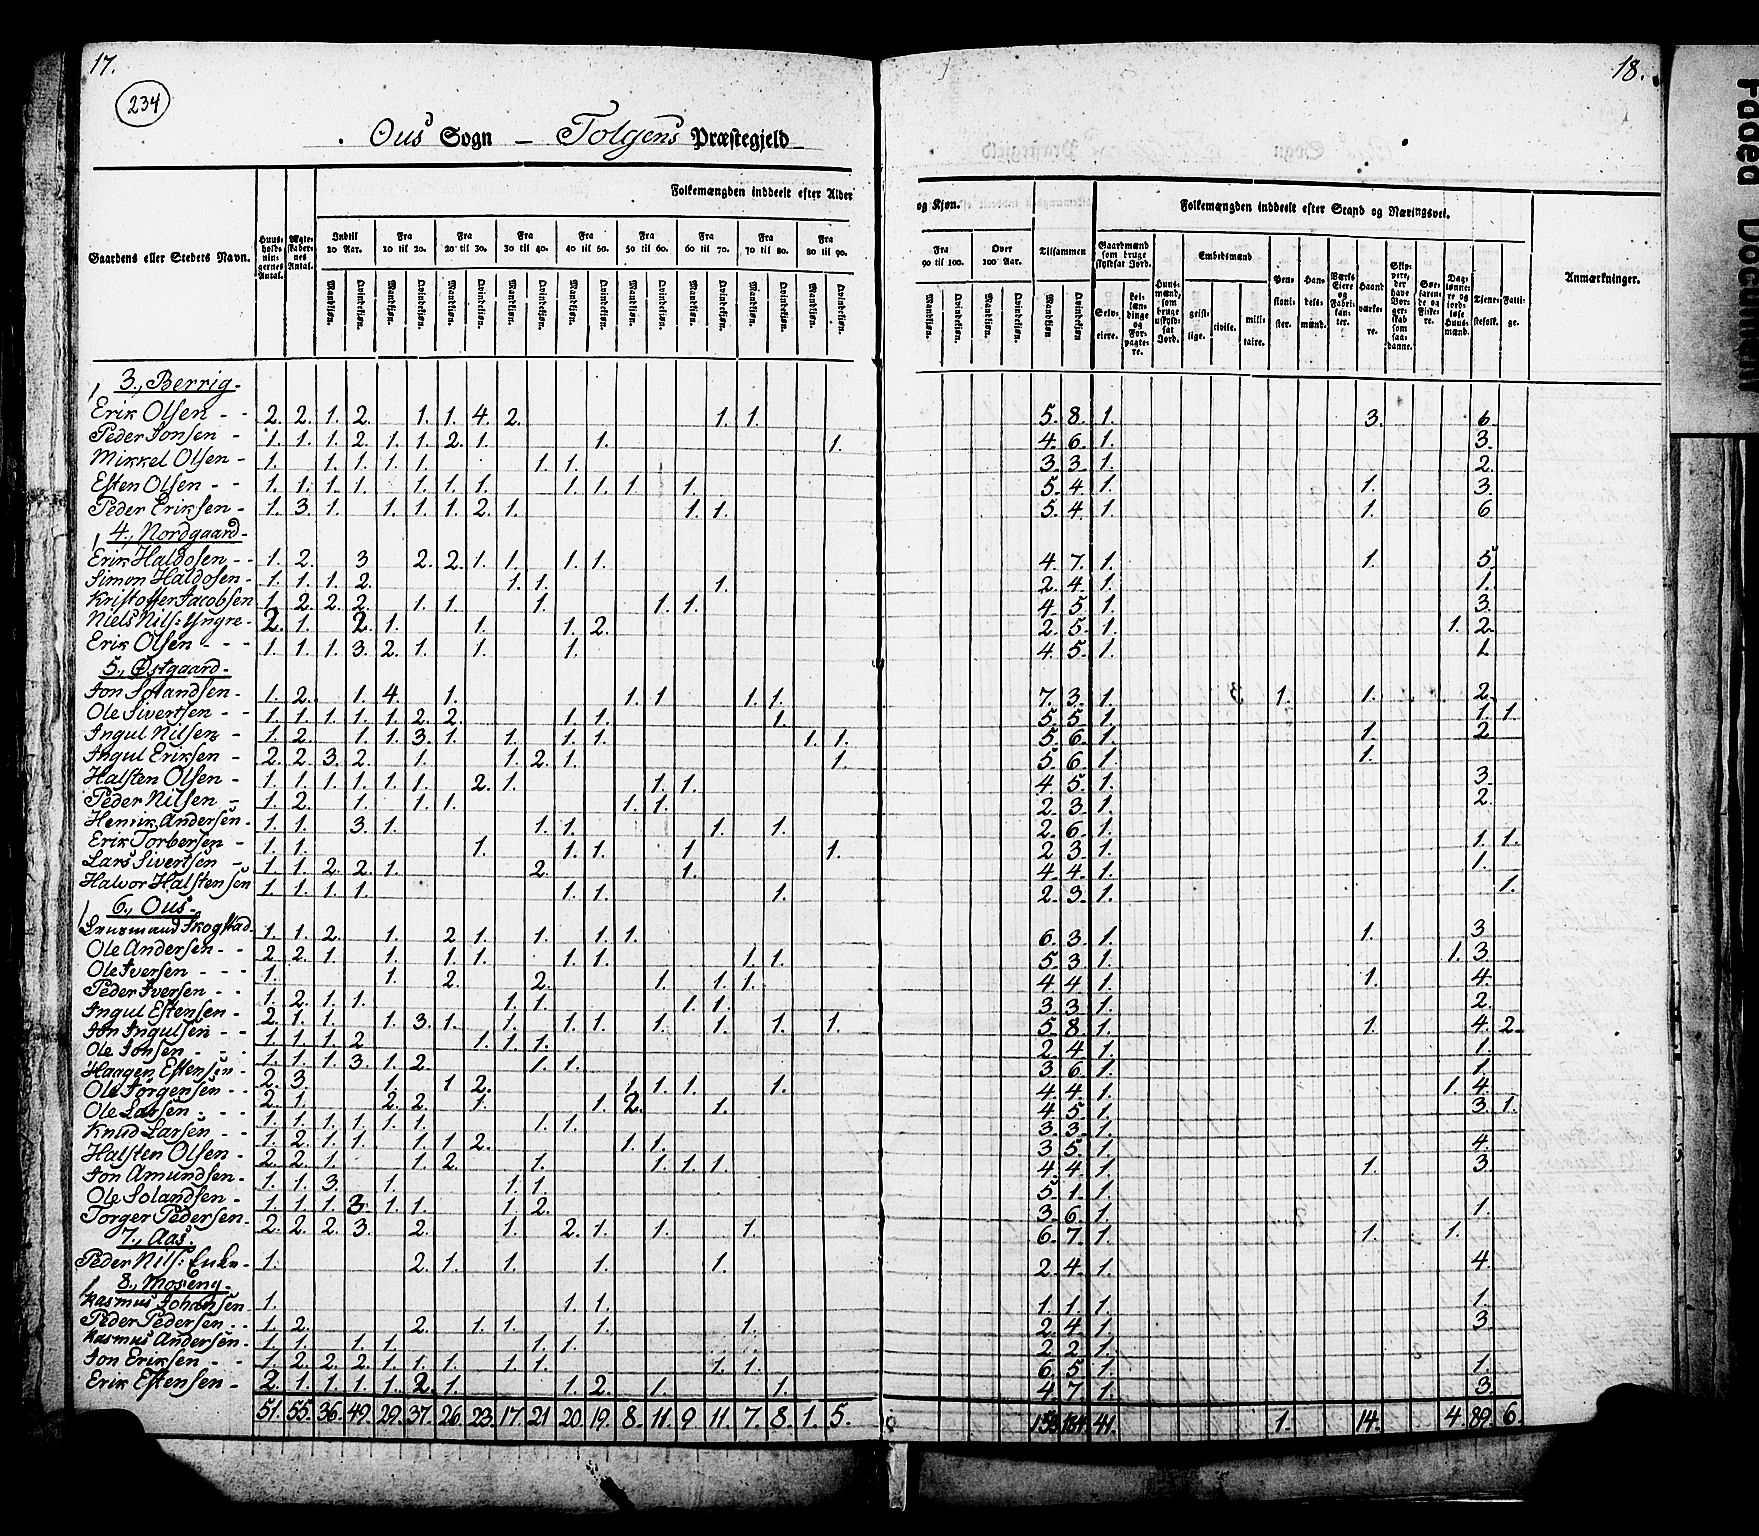 17.
18.
234
Ous Sogn – Tolgens Præstegjeld
Gaardens eller Stedets Navn.
Huusholdningernes Antal.
Ægteskabernes Antal.
Folkemængden inddeelt efter Alder og Kjøn.
Indtil 10 Aar.
Fra 10 til 20.
Fra 20 til 30.
Fra 30 til 40.
Fra 40 til 50.
Fra 50 til 60.
Fra 60 til 70.
Fra 70 til 80.
Fra 80 til 90.
Fra 90 til 100.
Over 100 Aar.
Tilsammen
Mandkjøn. Qvindekjøn.
Folkemængden inddeelt efter Stand og Næringsvei.
Gaardmænd som bruge skyldsat Jord.
Selveiere.
Leilændinge og Forpagtere.
Huusmænd, som bruge uskyldsat Jord.
Embedsmænd
geistlige.
civile.
militaire.
Pensionister.
Handelsmænd.
Værks Eiere og Fabrikanter.
Haandværkere.
Skippere, der have Borgerskab som saadanne.
Søefarende og Fiskere.
Daglønnere og jordløse Huusmænd.
Tjenestefolk.
Fattige.
Anmærkninger.
3., Berrig.
Erik Olsen - - 2. 2. 1. 2. 1. 1. 4. 2. 1. 1. 5. 8. 1. 3. 6.
Peder Jonsen - 1. 1. 1. 2. 1. 1. 2. 1. 1. 1. 4. 6. 1. 3.
Mikkel Olsen - 1. 1. 1. 1. 1. 1. 1. 3. 3. 1. 2.
Esten Olsen - - 1. 1. 1. 1. 1. 1. 1. 1. 1. 1 1. 5. 4. 1. 1. 3.
Peder Eriksen - 1. 3. 1. 1. 1. 1. 2. 1. 1. 1. 5. 4. 1. 1. 6
4., Nordgaard.
Erik Haldosen - - 1. 2. 3 2. 2. 1. 1. 1. 1. 4. 7. 1. 1. 5.
Simon Haldosen - 1. 1. 1. 2. 1. 1. 1. 2. 4. 1. 1.
Kristoffer Jacobsen 1. 2. 2. 2. 1. 1. 1. 1. 1. 4. 5. 1. 3.
Niels Nils: Yngre - 2. 1. 2. 1. 1. 1. 2. 2. 5. 1. 1. 2.
Erik Olsen - - - 1. 1. 1. 3. 2. 1. 1. 1. 4. 5. 1. 1.
5., Østgaard.
Jon Solandsen - 1. 2. 1. 4. 1. 1. 1 1. 1. 7. 3. 1. 1. 1. 2.
Ole Sivertsen - - 1. 1. 1. 1. 1. 2. 2. 1. 1. 1. 5. 5. 1. 1. 1.
Ingul Nilsen - 1. 2. 1. 1. 3. 1. 1. 1. 1. 1. 1. 5. 6. 1. 1. 2
Ingul Eriksen - 2. 2. 3. 2. 1. 1. 2. 1. 1. 5. 6. 1. 1.
Halsten Olsen - 1. 1. 1. 1. 1. 1. 2. 1. 1. 1. 4. 5. 1. 3.
Peder Nilsen - 1. 2. 1. 1. 1. 1. 1. 2. 3. 1. 2.
Henrik Andersen. 1. 1. 3. 1. 1. 1. 1. 1. 2. 6. 1.
Erik Torbersen - 1. 1. 1. 1. 1. 1. 1. 2. 3. 1. 1. 1.
Lars Sivertsen - 1. 1. 2. 2. 1. 2. 1. 4. 4. 1. 1.
Halvor Halstensen 1. 1. 1. 1. 1. 1. 1. 2. 3. 1. 1.
6., Ous.
Lensmand Skogstad. 1. 1. 2. 1. 2 1. 1. 1. 1. 6. 3. 1. 1. 3
Ole Andersen - - 2. 2. 1 1. 1. 1. 1. 1. 1. 1. 5. 3. 1. 1. 3
Ole Iversen - - - 1. 1. 2. 2. 1. 1. 1. 4. 4. 1. 1. 4.
Peder Iversen - - 1. 2. 1. 1. 1. 1. 1. 1. 3. 3. 1. 2.
Ingul Estensen - 2. 1. 1. 1. 3. 1. 1. 1. 1. 1. 1. 1. 1. 5. 8. 1. 1. 4. 2.
Jon Ingulsen - - 1. 1. 1. 2 1. 1. 1. 2. 4. 1. 1.
Ole Jonsen - - - 1. 1. 1. 3. 1. 2. 1. 1. 3. 6. 1. 1.
Haagen Estensen - 2. 3. 1. 1 2. 1. 1. 1. 1. 4. 4. 1. 1. 4.
Ole Jørgensen - - 2. 1. 2. 2. 1. 1. 2. 1. 4. 5. 1. 3. 1.
Ole Larsen - - - 1. 1. 1. 1. 1. 1. 1. 1. 3. 3. 1.
Knud Larsen - - 1. 2. 1. 1. 1. 1. 2. 1. 1. 3. 5. 1. 4.
Halsten Olsen - 2. 2. 1. 1. 2. 1. 1. 1. 1. 4. 4. 1. 1. 3.
Jon Amundsen - 1. 1. 3. 1. 1. 1. 5. 1. 1.
Ole Solandsen - 1. 1. 1. 3. 1. 1. 1. 2. 3. 6. 1. 1.
Torger Pedersen. 2. 2. 2. 3. 2. 1. 2. 1. 1. 1. 6. 7. 1. 1. 1.
7., Aas.
Peder Nils: Enke - 1. 2. 1. 1. 1. 1. 2. 4. 1. 4.
8., Moseng.
Rasmus Johansen. 1. 1. 1. 1. 1. 1. 1.
Peder Pedersen - - 1. 2. 2. 1. 1. 1. 1. 2. 4. 1. 3.
Rasmus Andersen - 1. 1. 1. 1. 1. 1. 2. 2. 1.
Jon Eriksen - - 1. 2. 2. 2. 1. 1. 1. 1. 1. 1. 1. 6. 5. 1. 1.
Erik Estensen - 2. 1. 1. 1. 1. 2. 1. 1. 2. 1. 1. 4. 7. 1. 3.
51. 55. 36. 49. 29. 37. 26. 23. 17. 21 20. 19. 8. 11. 9. 11. 7. 8. 1. 5. 41. 1. 14. 4. 89. 6.
Faded Document